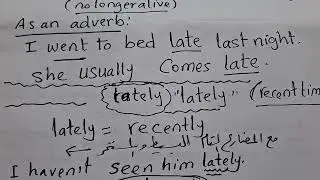 (no longerative)
As an adverb:
I went to bed late last night.
She usually comes late.
lately "lately" (recent time
lately = recently
مع المضارع التام البسيط و المستمر
I haven't seen him lately.